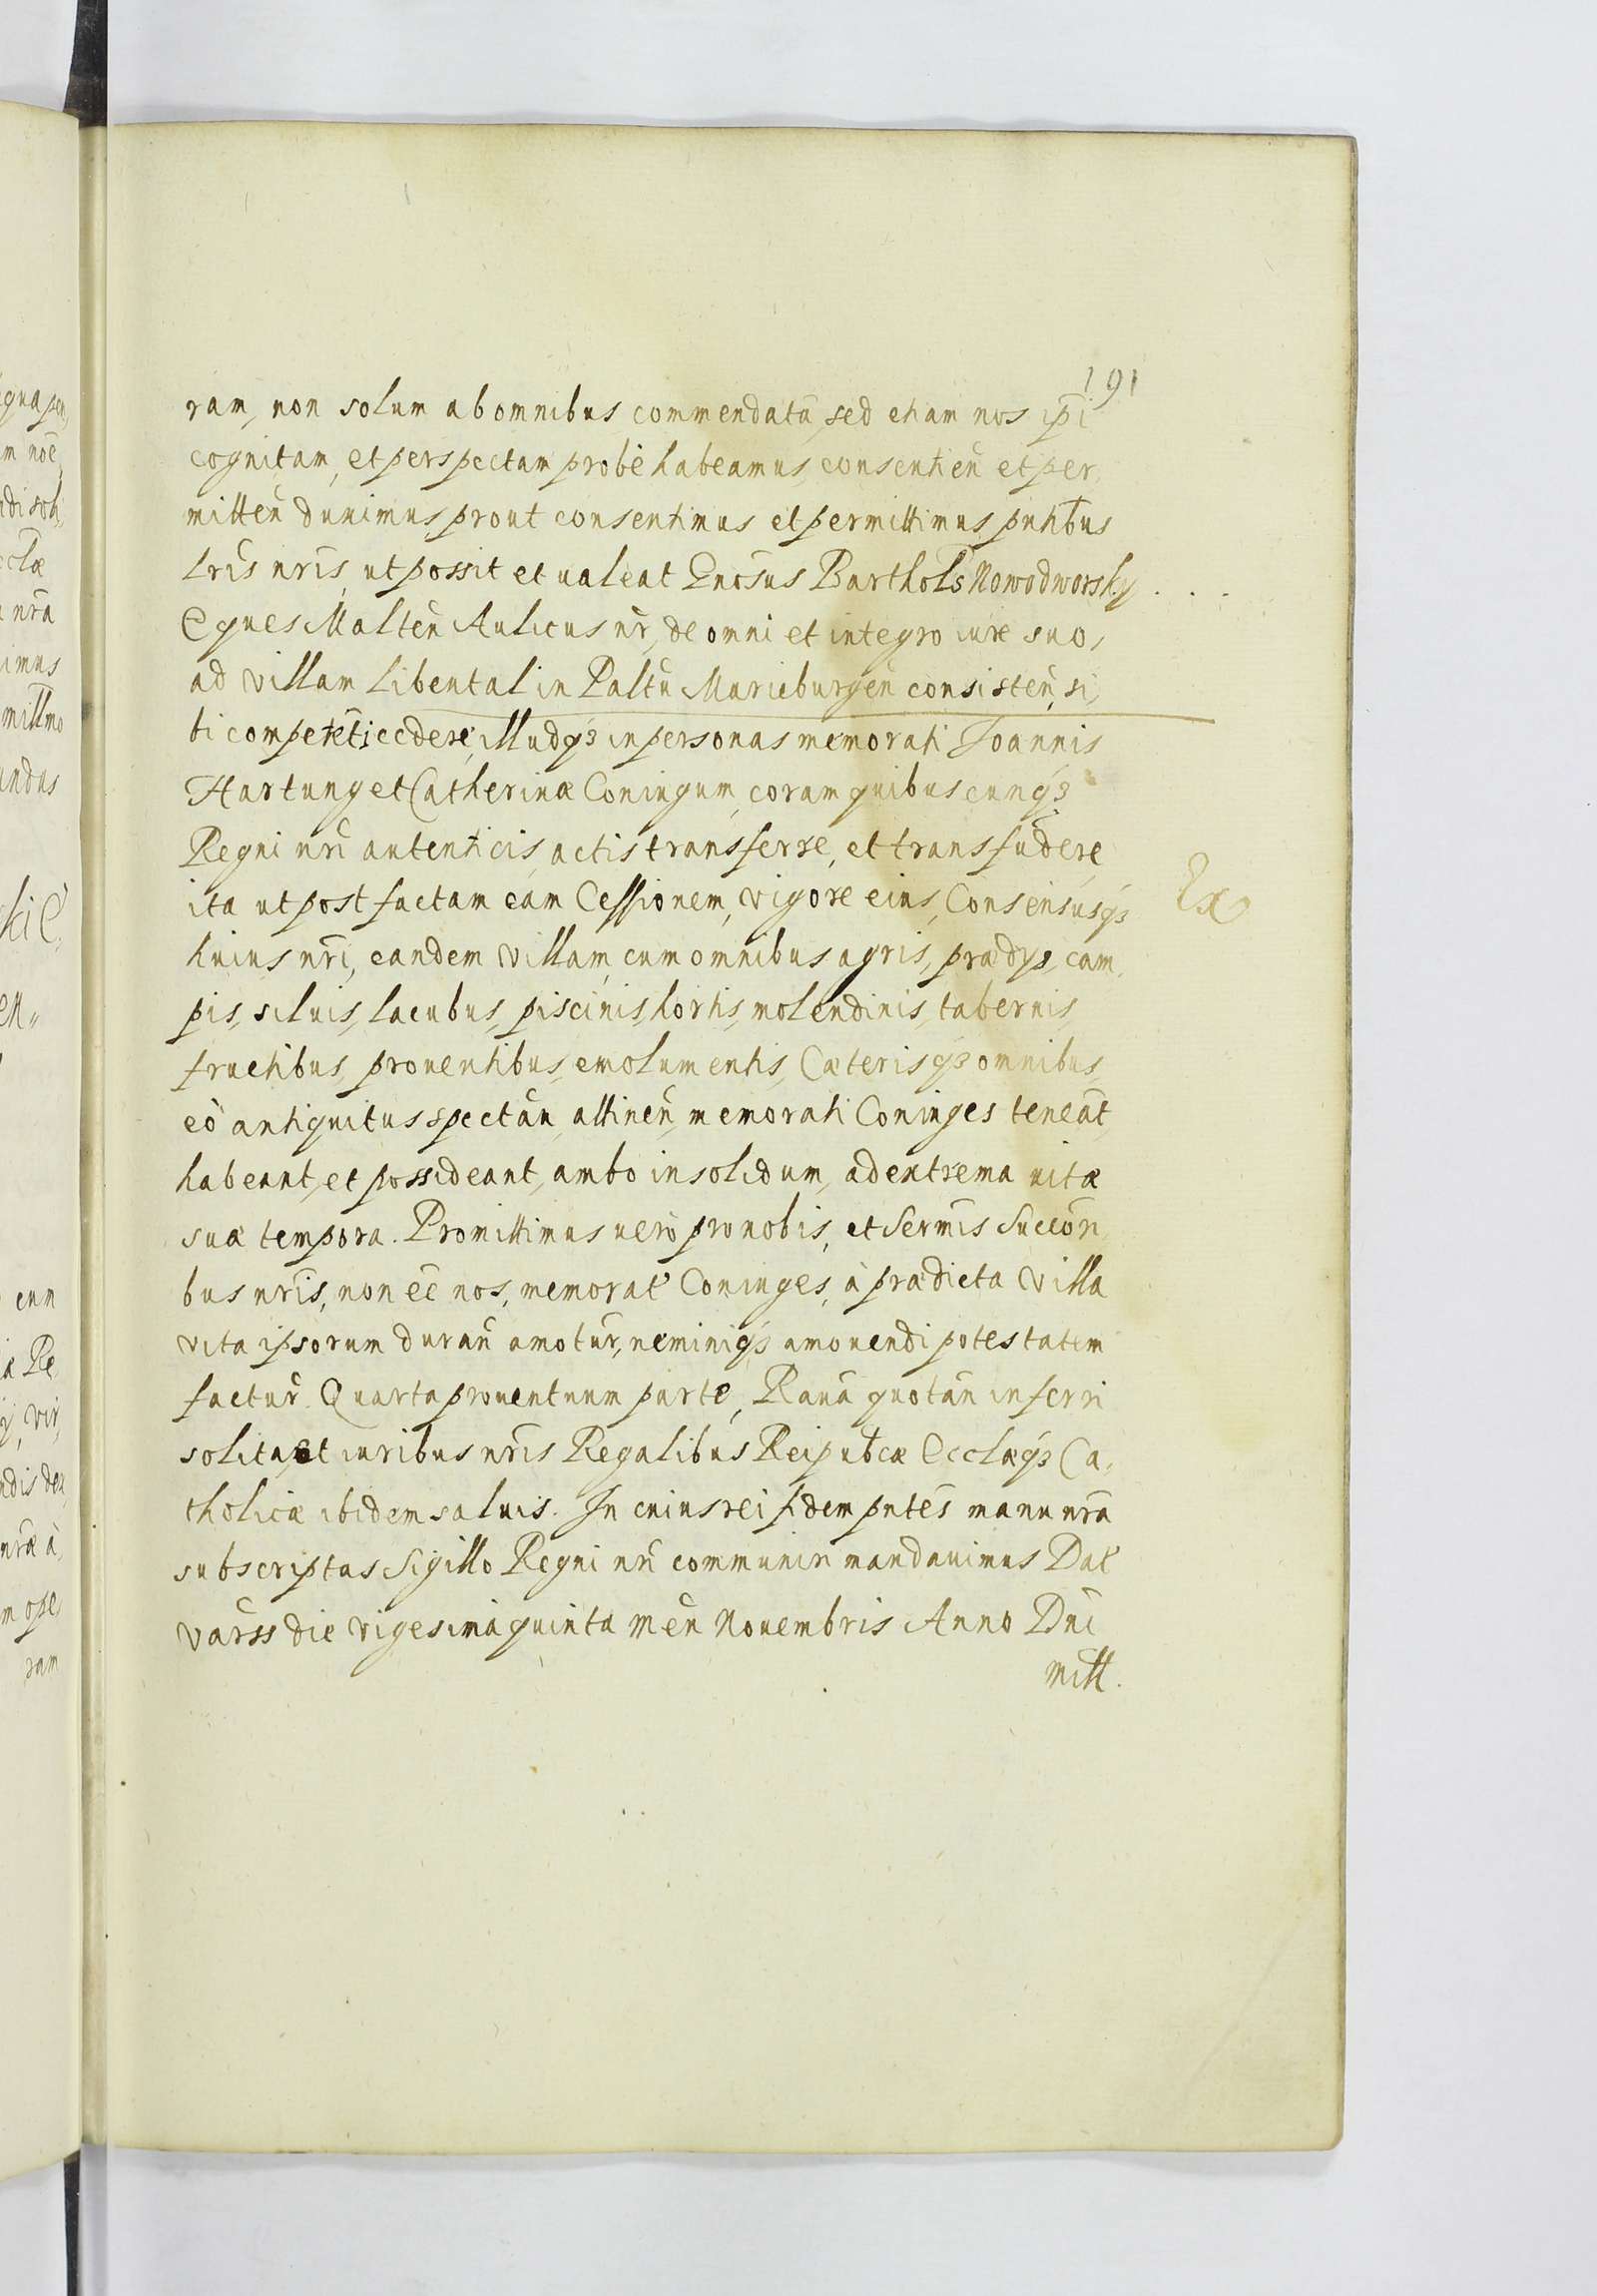 191
ram, non solum ab omnibus commendatā, sed etiam nos ip̄i
cognitam, et perspectam probè habeamus, consentien̄ et per,
mitten̄ duximus, prout consentimus et permittimus pn̄tibus
Lr̄is nr̄is, ut possit et ualeat Gn̄osus Barthols̄ Nowodworsky . . .
Eques Malten̄ Aulicus nr̄, de omni et integro iure suo,
ad villam Libental in Paltū Marieburgen̄ consisten̄, si,
bi competēti cedere, illudq3 in personas memorati Joannis
Hartung et Catherinæ Coniugum, coram quibuscunq3
Regni nr̄i autenticis, actis transferre, et transfūdere,
ita ut post factam eām Cessionem, vigore eius, Consensusq3
huius nr̄i, eandem villam, cum omnibus agris, prædys, cam,
pis, siluis, lacubus, piscinis, hortis, molendinis, tabernis,
fructibus, prouentibus, emolumentis, Cæterisq3 omnibus,
eò antiquitus spectān, attinen̄, memorati Coniuges teneāt,
habeant, et possideant, ambo in solidum, ad extrema uitæ
suæ tempora. Promittimus uerò pro nobis, et Serm̄is Succōri
bus nr̄is, non eē nos, memorat' Coniuges, à prædicta Villa
vita ipsorum durān amotūr, neminiq3 amouendi potestatem
factur̄. Quarta prouentuum parte, Rauā quotān inferri
solita, et iuribus nr̄is Regalibus Reipub̄cæ Eccl̄æq3 Ca,
tholicæ ibidem saluis. In cuius rei fidem pn̄tes manu nr̄a
subscriptas Sigillo Regni nr̄i communiri mandauimus Dat'
Vārss die vigesima quinta Men̄ Nouembris Anno Dn̄i
Mill.
Ex